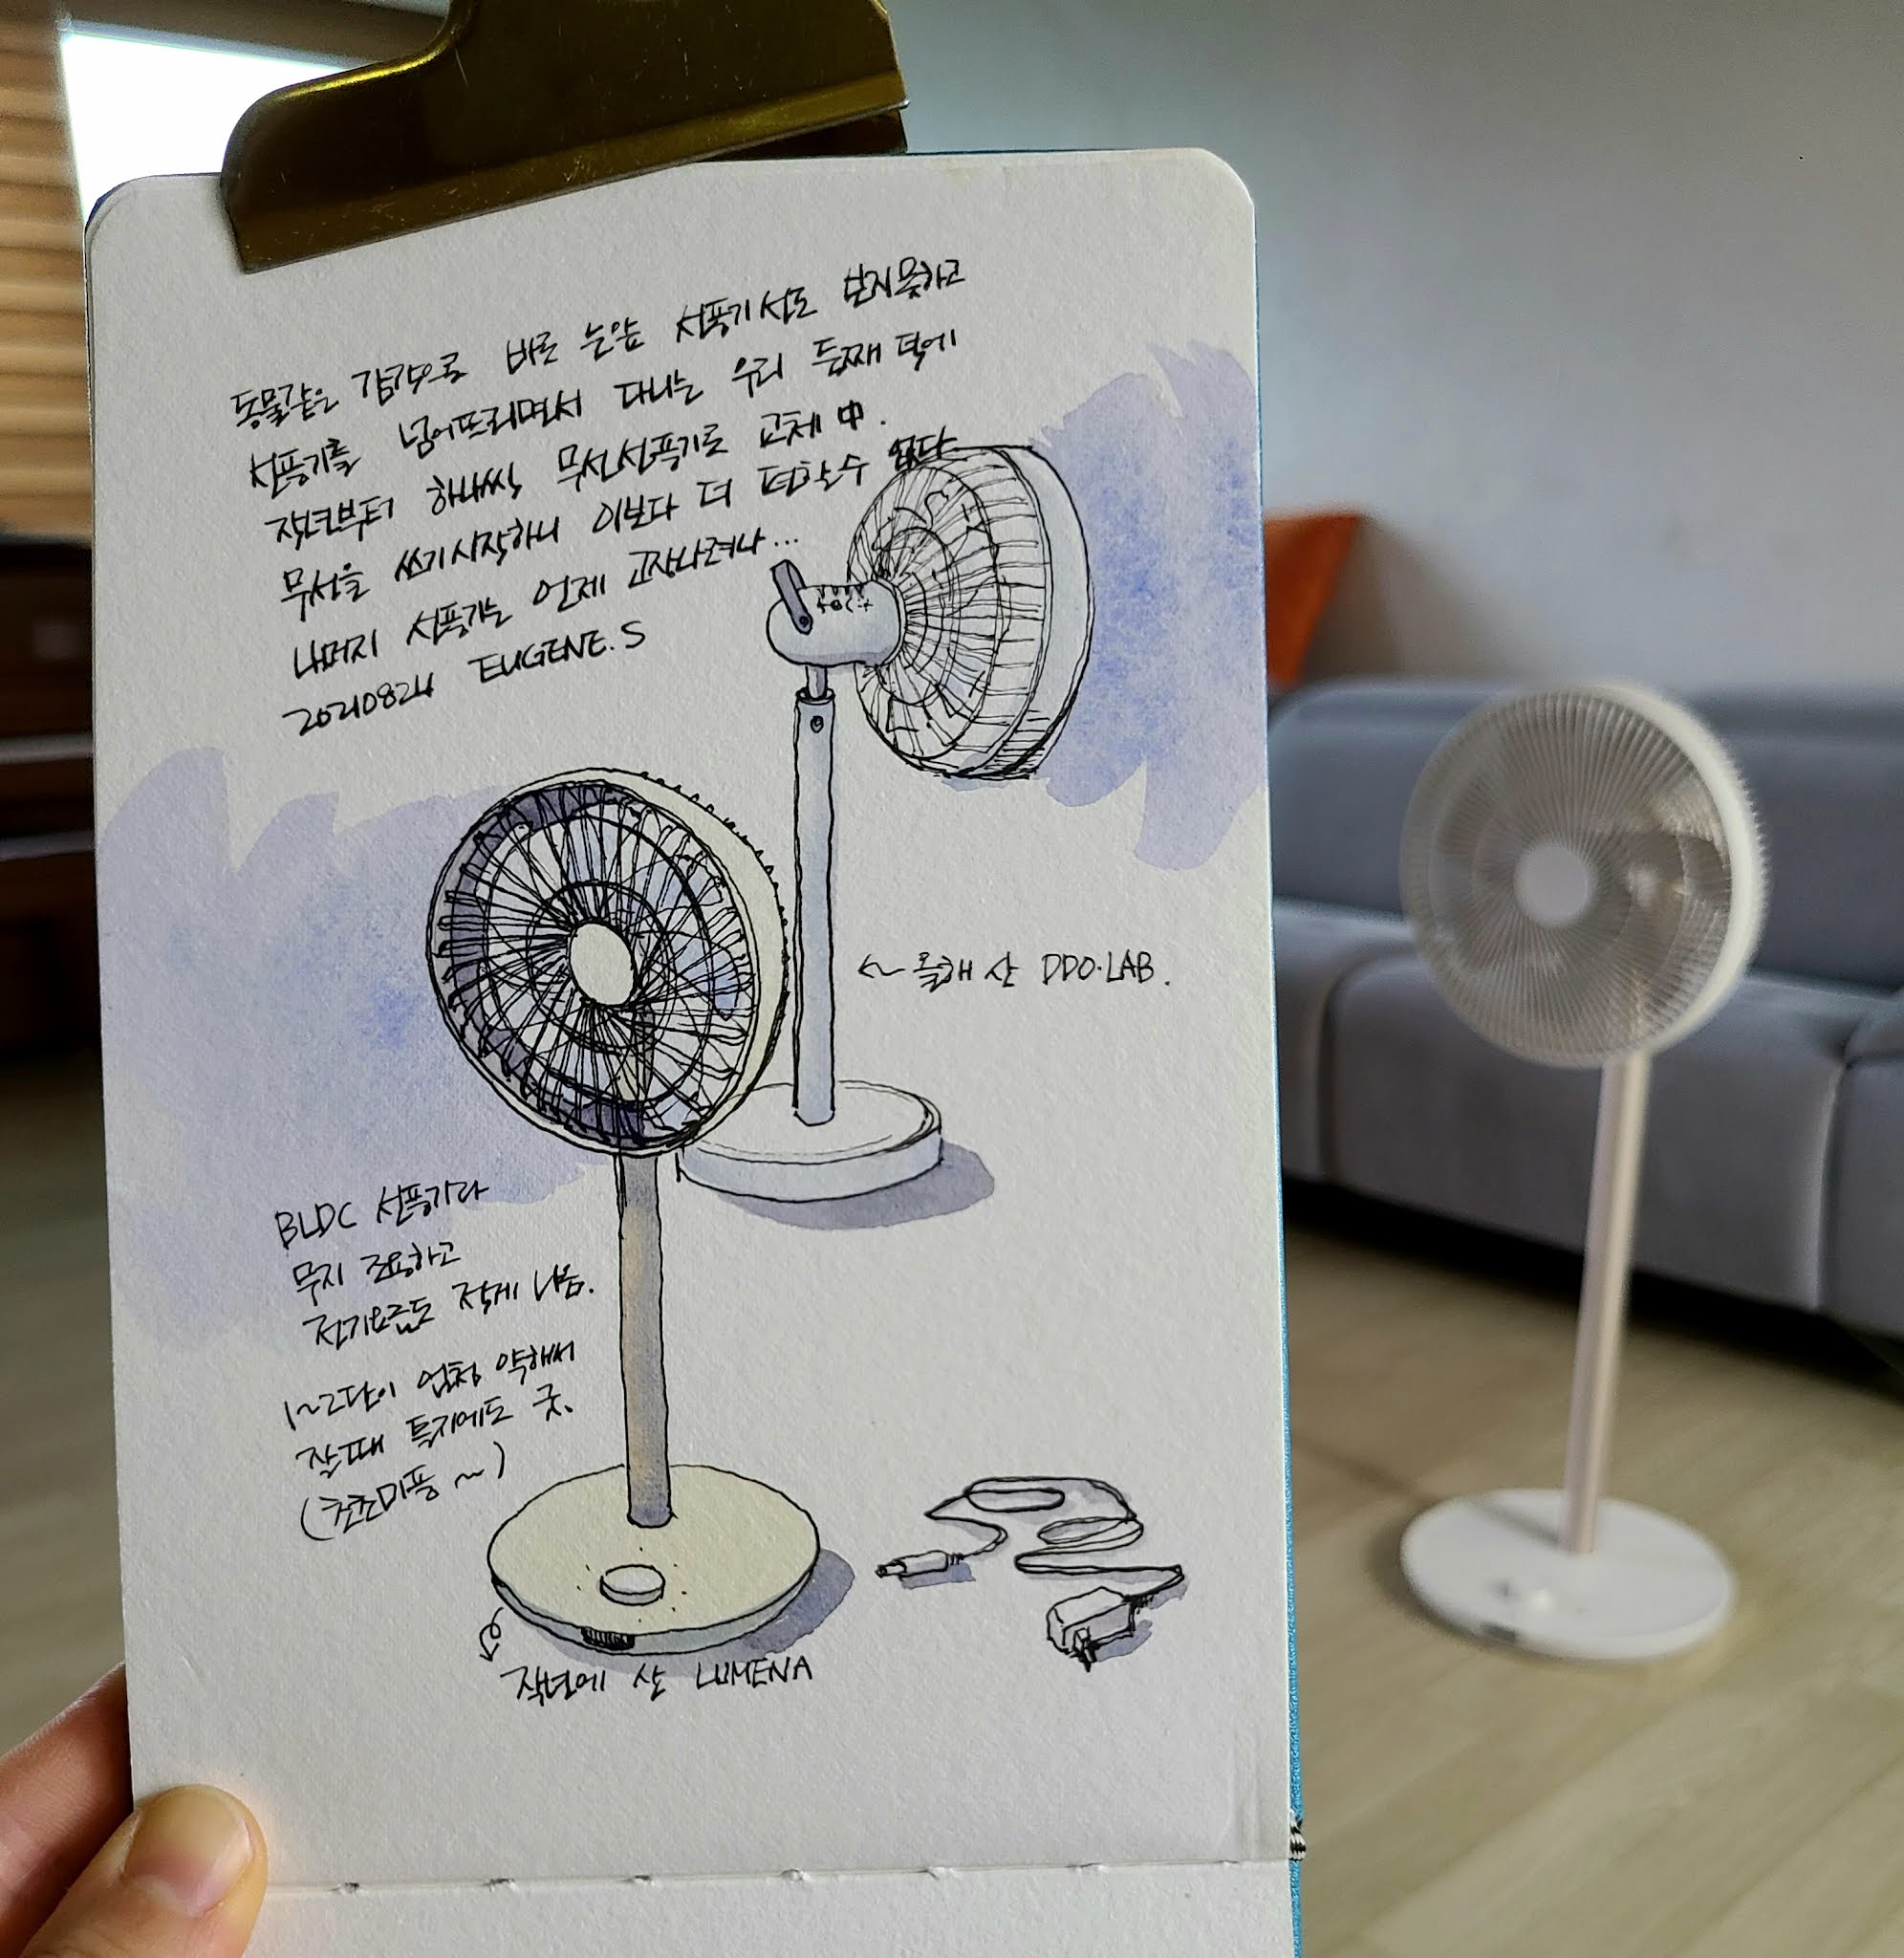 동물같은 감각으로 바로 눈앞 선풍기선도 보지못하고
선풍기를 넘어뜨리면서 다니는 우리 둘째 덕에
작년부터 하나씩 무선선풍기로 교체 中.
무선을 쓰기 시작하니 이보다 더 편할 수 없다
나머지 선풍기는 언제 고장나려나...
20210824 EUGENE.S
<~ 올해 산 DDO·LAB.
BLDC 선풍기라
무지 조용하고
전기요금도 적게 나옴.
1~2단이 엄청 약해서
잘때 틀기에도 굿.
(초초미풍~)
작년에 산 LUMENA